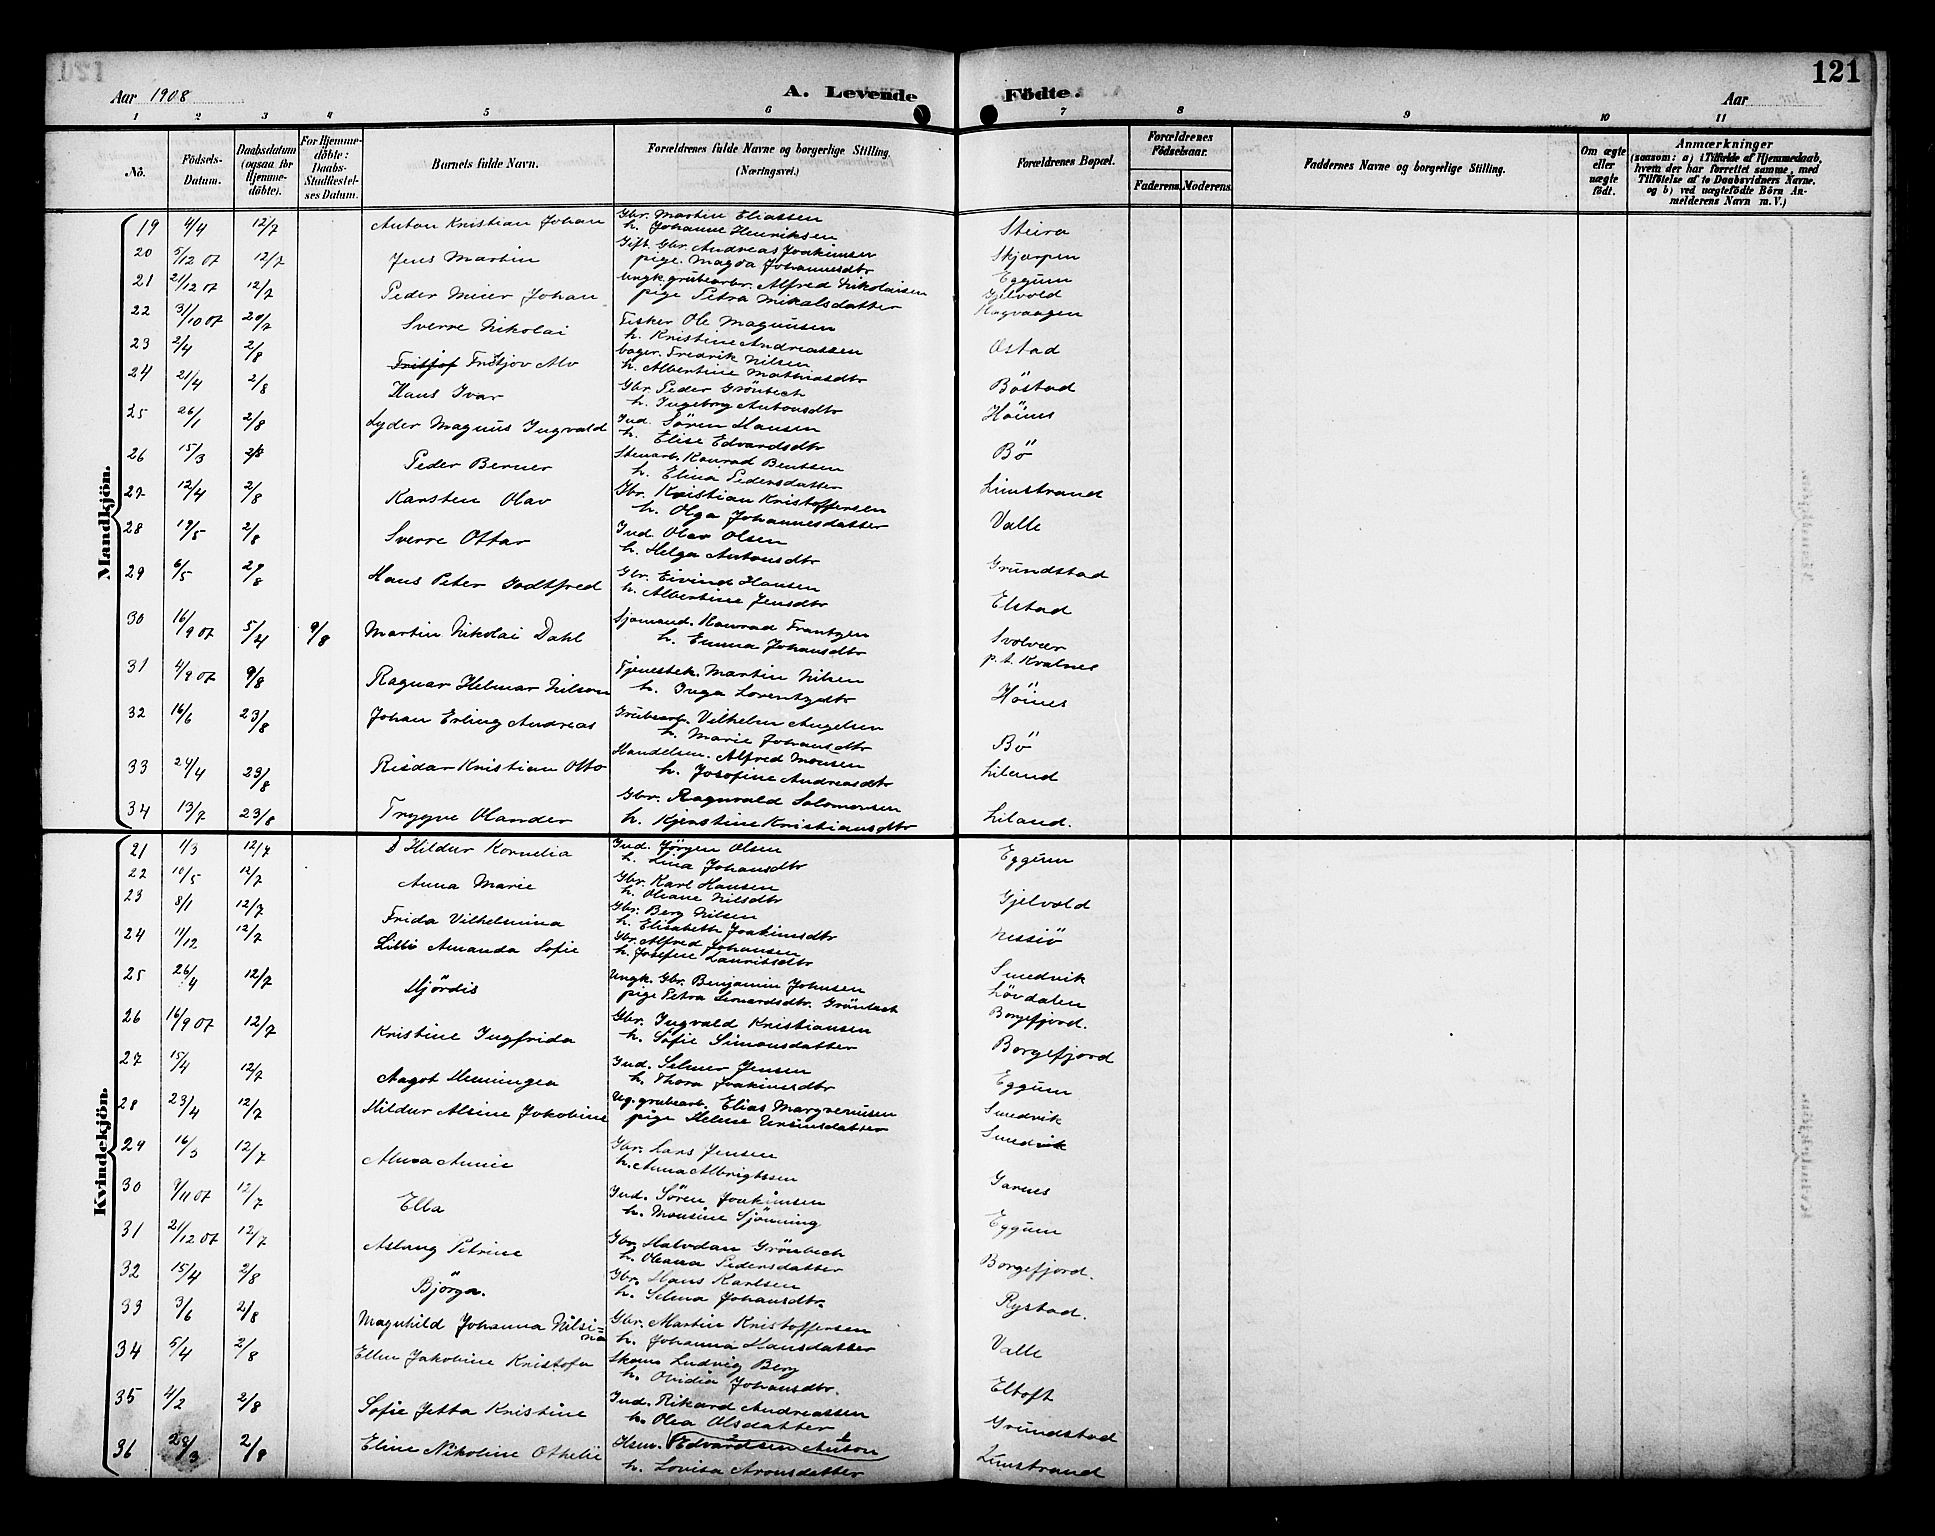 121
Aar 1908
A. Levende Födte.
Aar
1 2 3 4 5 6 7 8 9 10 11
Nö.
Födsels-Datum.
Daabsdatum (ogsaa for Hjemme-döbte).
For Hjemme-döbte: Daabs-Stadfæstel-ses Datum.
Barnets fulde Navn.
Forældrenes fulde Navne og borgerlige Stilling. (Næringsvei.)
Forældrenes Bopæl.
Forældrenes Födselsaar.
Faderens. Moderens.
Faddernes Navne og borgerlige Stilling.
Om ægte eller uægte födt.
Anmærkninger
(saasom: a) i Tilfælde af Hjemmedaab, hvem der har forrettet samme, med Tilföielse af to Daabsvidners Navne, og b) ved uægtefödte Börn Anmelderens Navn m. V.)
Mandkjön.
19 4/4 12/7 Anton Kristian Johan Gbr. Martin Eliassen Steira
h. Johanne Henriksen
20 5/12 07 12/7 Jens Martin Gift. Gbr. Andreas Joakimsen Skjærpen
pige. Magda Johannesdtr Eggum
21 21/12 07 12/7 Peder Meier Johan Ungk. grubearbr. Alfred Nikolaisen Gjelvold
pige Petra Mikalsdatter Hagvaagen
22 31/10 07 20/7 Sverre Nikolai Fisker Ole Magnusen
h. Kristine Andreassen Østad
23 2/4 2/8 Fritjof Fritjov Alv bager. Fredrik Nilsen
h. Albertine Mathiasdtr Böstad
24 21/4 2/8 Hans Ivar Gbr Peder Grönbech
h. Ingeborg Antonsdtr Höines
25 26/1 2/8 Lyder Magnus Ingvald Ind. Sören Hansen
h. Elise Edvardsdtr Bö
26 15/3 2/8 Peder Berner Stenarb. Konrad Bentsen
h. Elina Pedersdatter
27 12/4 2/8 Karsten Olav Gbr. Kristian Kristoffersen Limstrand
h. Olga Johannesdatter
28 19/5 2/8 Sverre Ottar Ind. Olav Olsen Valle
h. Helga Antonsdtr
29 6/5 2/8 Hans Peter Godtfred Gbr. Eivind Hansen Grundstad
h. Albertine Jensdtr Elstad
30 16/9 07 5/4 9/8 Martin Nikolai Dahl Sjömand. Konrad Frantzen Svolvær
h. Emma Johansdtr p.t. Kvalnes
31 4/9 07 9/8 Ragnar Helmar Nilson Tjenestek. Martin Nilsen
h. Inga Lorentzdtr Höines
32 16/6 23/8 Johan Erling Andreas Grubearb. Vilhelm Angelsen
h. Marie Johansdtr Bö
33 24/4 23/8 Reidar Kristian Otto Handelsm. Alfred Monsen Liland
h. Josefine Andreasdtr
34 13/7 23/8 Trygve Olander Gbr. Ragnvald Salomonsen Liland.
h. Kjerstine Kristiansdtr
Kvindekjön.
21 1/3 12/7 Hildur Kornelia Ind. Jörgen Olsen Eggum
h. Lina Johansdtr
22 10/5 12/7 Anna Marie Gbr. Karl Hansen Gjelvold
h. Oliane Nilsdtr
23 8/1 12/7 Frida Vilhelmina Gbr. Berg Nilsen
h. Elisabeth Joakimsdtr Nessiö
24 11/12 12/7 Lilli Amanda Sofie Gbr. Alfred Johansen Smedvik
h. Josefine Lauritsdtr
25 26/4 12/7 Hjördis Ungk. Gbr. Benjamin Johnsen Lövdalen
pige Petra Leonardsdtr. Grönbech Borgefjord.
26 16/9 07 12/7 Kristine Ingfrida Gbr. Ingvald Kristiansen Borgefjord
h. Sofie Simonsdatter
27 15/4 12/7 Aagot Henningea Ind. Selmer Jensen Eggum
h. Thora Joakimsdtr
28 23/4 12/7 Hildur Alsine Jakobine Ug. grubearb. Elias Smedvik
pige Helene Ursinsdatter Smedvik
29 16/3 12/7 Annie Gbr. Lars Jensen Garnes
h. Anna Albrigtssen
30 9/11 07 12/7 Ella Ind. Sören Joakimsen Eggum
h. Monsine Sjönning
31 21/12 07 12/7 Aslaug Petrine Gbr Halvdan Grönbech Borgefjord.
h. Oleana Pedersdatter
32 15/4 2/8 Björga. Gbr. Hans Karlsen Rystad.
h. Selma Johansdtr.
33 3/6 2/8 Magnhild Johanna Nilsina Gbr. Martin Kristoffersen Valle
h. Johanna Hansdatter
34 5/4 2/8 Ellen Jakobine Kristofa Skom. Ludvig Berg Eltoft
h. Ovidia Johansdtr.
35 4/2 2/8 Sofie Jetta Kristine Ind. Rikard Andreassen Grundstad
h. Olea Olsdatter
36 2/8 Eline Nikoline Othelie Hsm. Edvardsen Anton Limstrand
h. Lovisa Aronsdatter